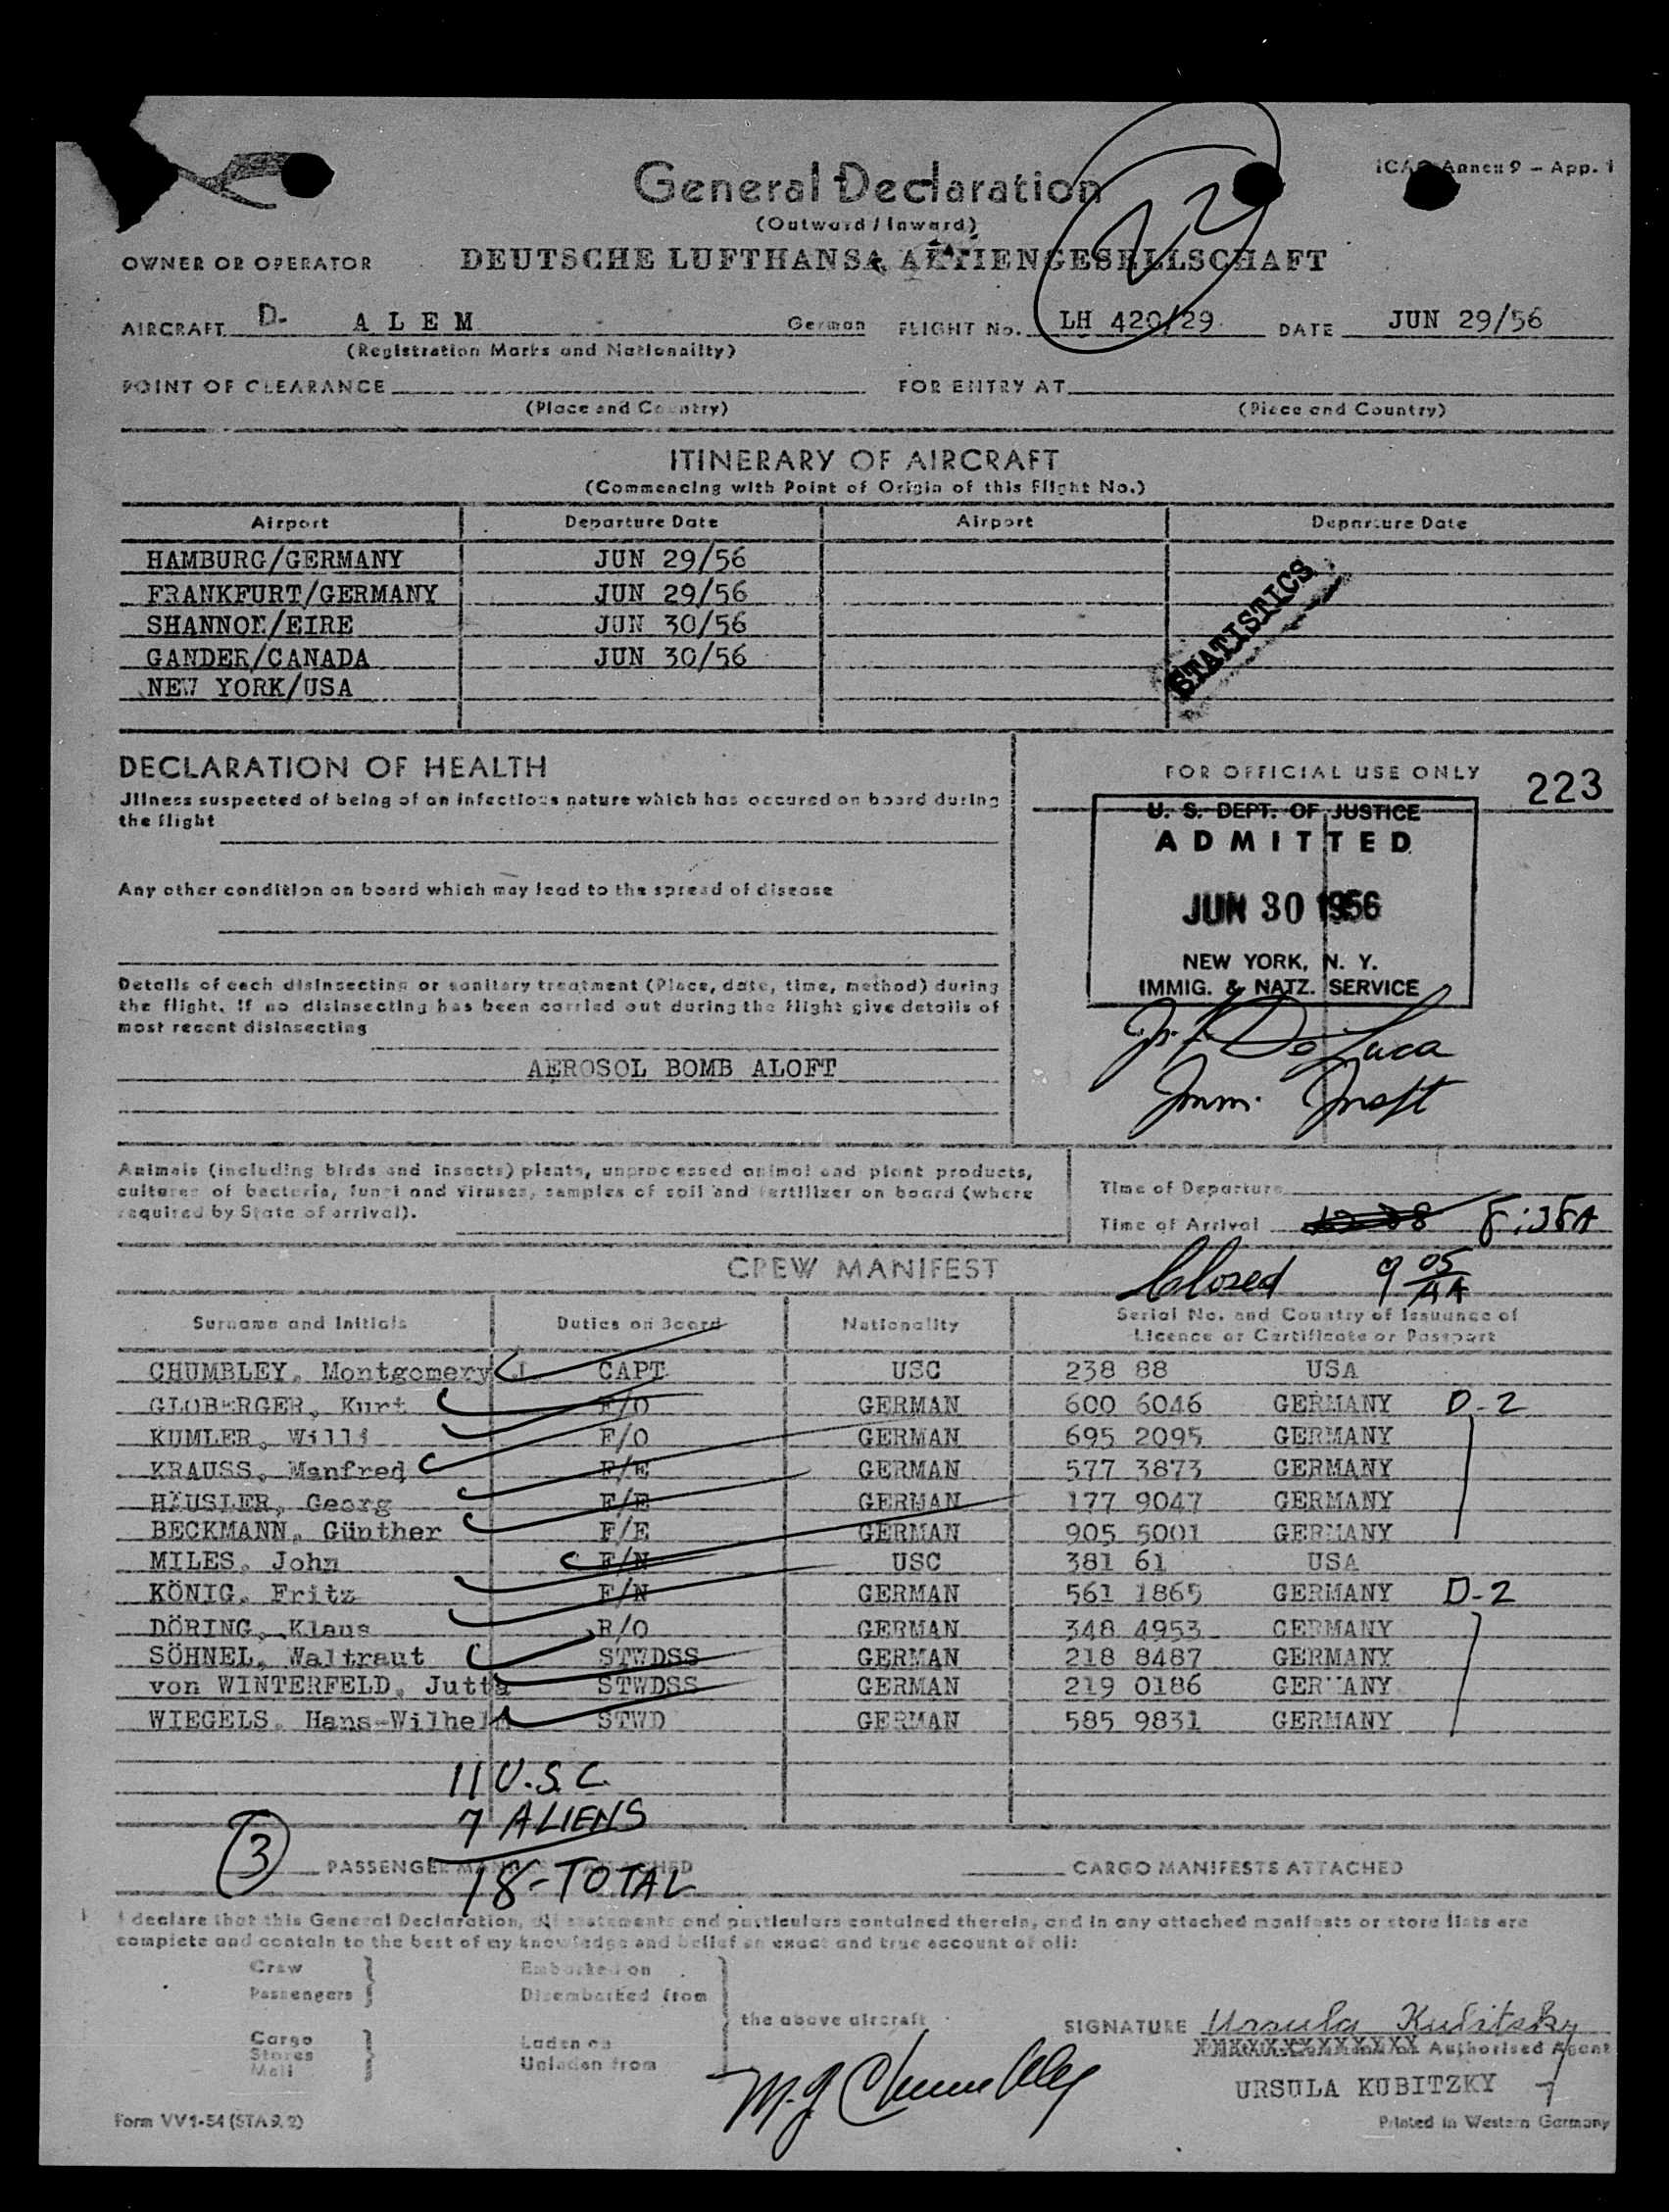 General Declaration
(Outward / Inward)
ICAO Annex 9 – App. 1
22
OWNER OR OPERATOR DEUTSCHE LUFTHANSA AKTIENGESELLSCHAFT
AIRCRAFT D- A L E M German FLIGHT No. LH 420/29 DATE JUN 29/56
(Registration Marks and Nationality)
POINT OF CLEARANCE FOR ENTRY AT
(Place and Country) (Place and Country)
ITINERARY OF AIRCRAFT
(Commencing with Point of Origin of this Flight No.)
Airport Departure Date Airport Departure Date
HAMBURG/GERMANY JUN 29/56
FRANKFURT/GERMANY JUN 29/56
SHANNON/EIRE JUN 30/56
GANDER/CANADA JUN 30/56
NEW YORK/USA
STATISTICS
DECLARATION OF HEALTH
Illness suspected of being of an infectious nature which has occured on board during
the flight
Any other condition on board which may lead to the spread of disease
Details of each disinsecting or sanitary treatment (Place, date, time, method) during
the flight. If no disinsecting has been carried out during the flight give details of
most recent disinsecting
AEROSOL BOMB ALOFT
FOR OFFICIAL USE ONLY 223
U. S. DEPT. OF JUSTICE
ADMITTED
JUN 30 1956
NEW YORK, N. Y.
IMMIG. & NATZ. SERVICE
De Luca
Imm. Inspt
Animals (including birds and insects) plants, unprocessed animal and plant products,
cultures of bacteria, fungi and viruses, samples of soil and fertilizer on board (where
required by State of arrival).
Time of Departure
Time of Arrival 8:38A
CREW MANIFEST
Closed 9 05
Surname and Initials Duties on Board Nationality Serial No. and Country of Issuance of
Licence or Certificate or Passport
CHUMBLEY, Montgomery J. CAPT USC 238 88 USA
GLOBERGER, Kurt F/O GERMAN 600 6046 GERMANY D-2
KUMLER, Willi F/O GERMAN 695 2095 GERMANY
KRAUSS, Manfred F/E GERMAN 577 3873 GERMANY
HÄUSLER, Georg F/E GERMAN 177 9047 GERMANY
BECKMANN, Günther F/E GERMAN 905 5001 GERMANY
MILES, John F/N USC 381 61 USA
KÖNIG, Fritz F/N GERMAN 561 1865 GERMANY D-2
DÖRING, Klaus R/O GERMAN 348 4953 GERMANY
SÖHNEL, Waltraut STWDSS GERMAN 218 8487 GERMANY
von WINTERFELD, Jutta STWDSS GERMAN 219 0186 GERMANY
WIEGELS, Hans-Wilhelm STWD GERMAN 585 9831 GERMANY
11 U.S.C.
7 ALIENS
18-TOTAL
3 PASSENGER MANIFESTS ATTACHED CARGO MANIFESTS ATTACHED
I declare that this General Declaration, all statements and particulars contained therein, and in any attached manifests or store lists are
complete and contain to the best of my knowledge and belief an exact and true account of all:
Crew Embarked on
Passengers Disembarked from
the above aircraft
Cargo Laden on
Stores
Mail Unladen from
M. J. Chumbley
SIGNATURE Ursula Kubitzky
Authorised Agent
URSULA KUBITZKY
Form VV1-54 (STA 9.2) Printed in Western Germany